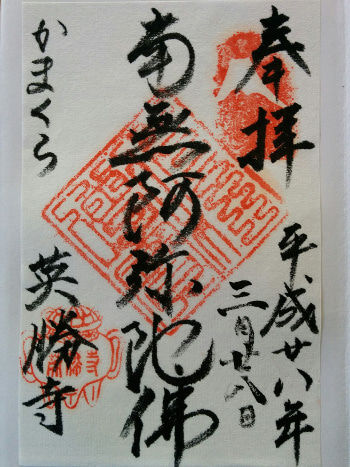 奉拝
平成廿八年
三月廿八日
南無阿弥陀佛
かまくら
英勝寺